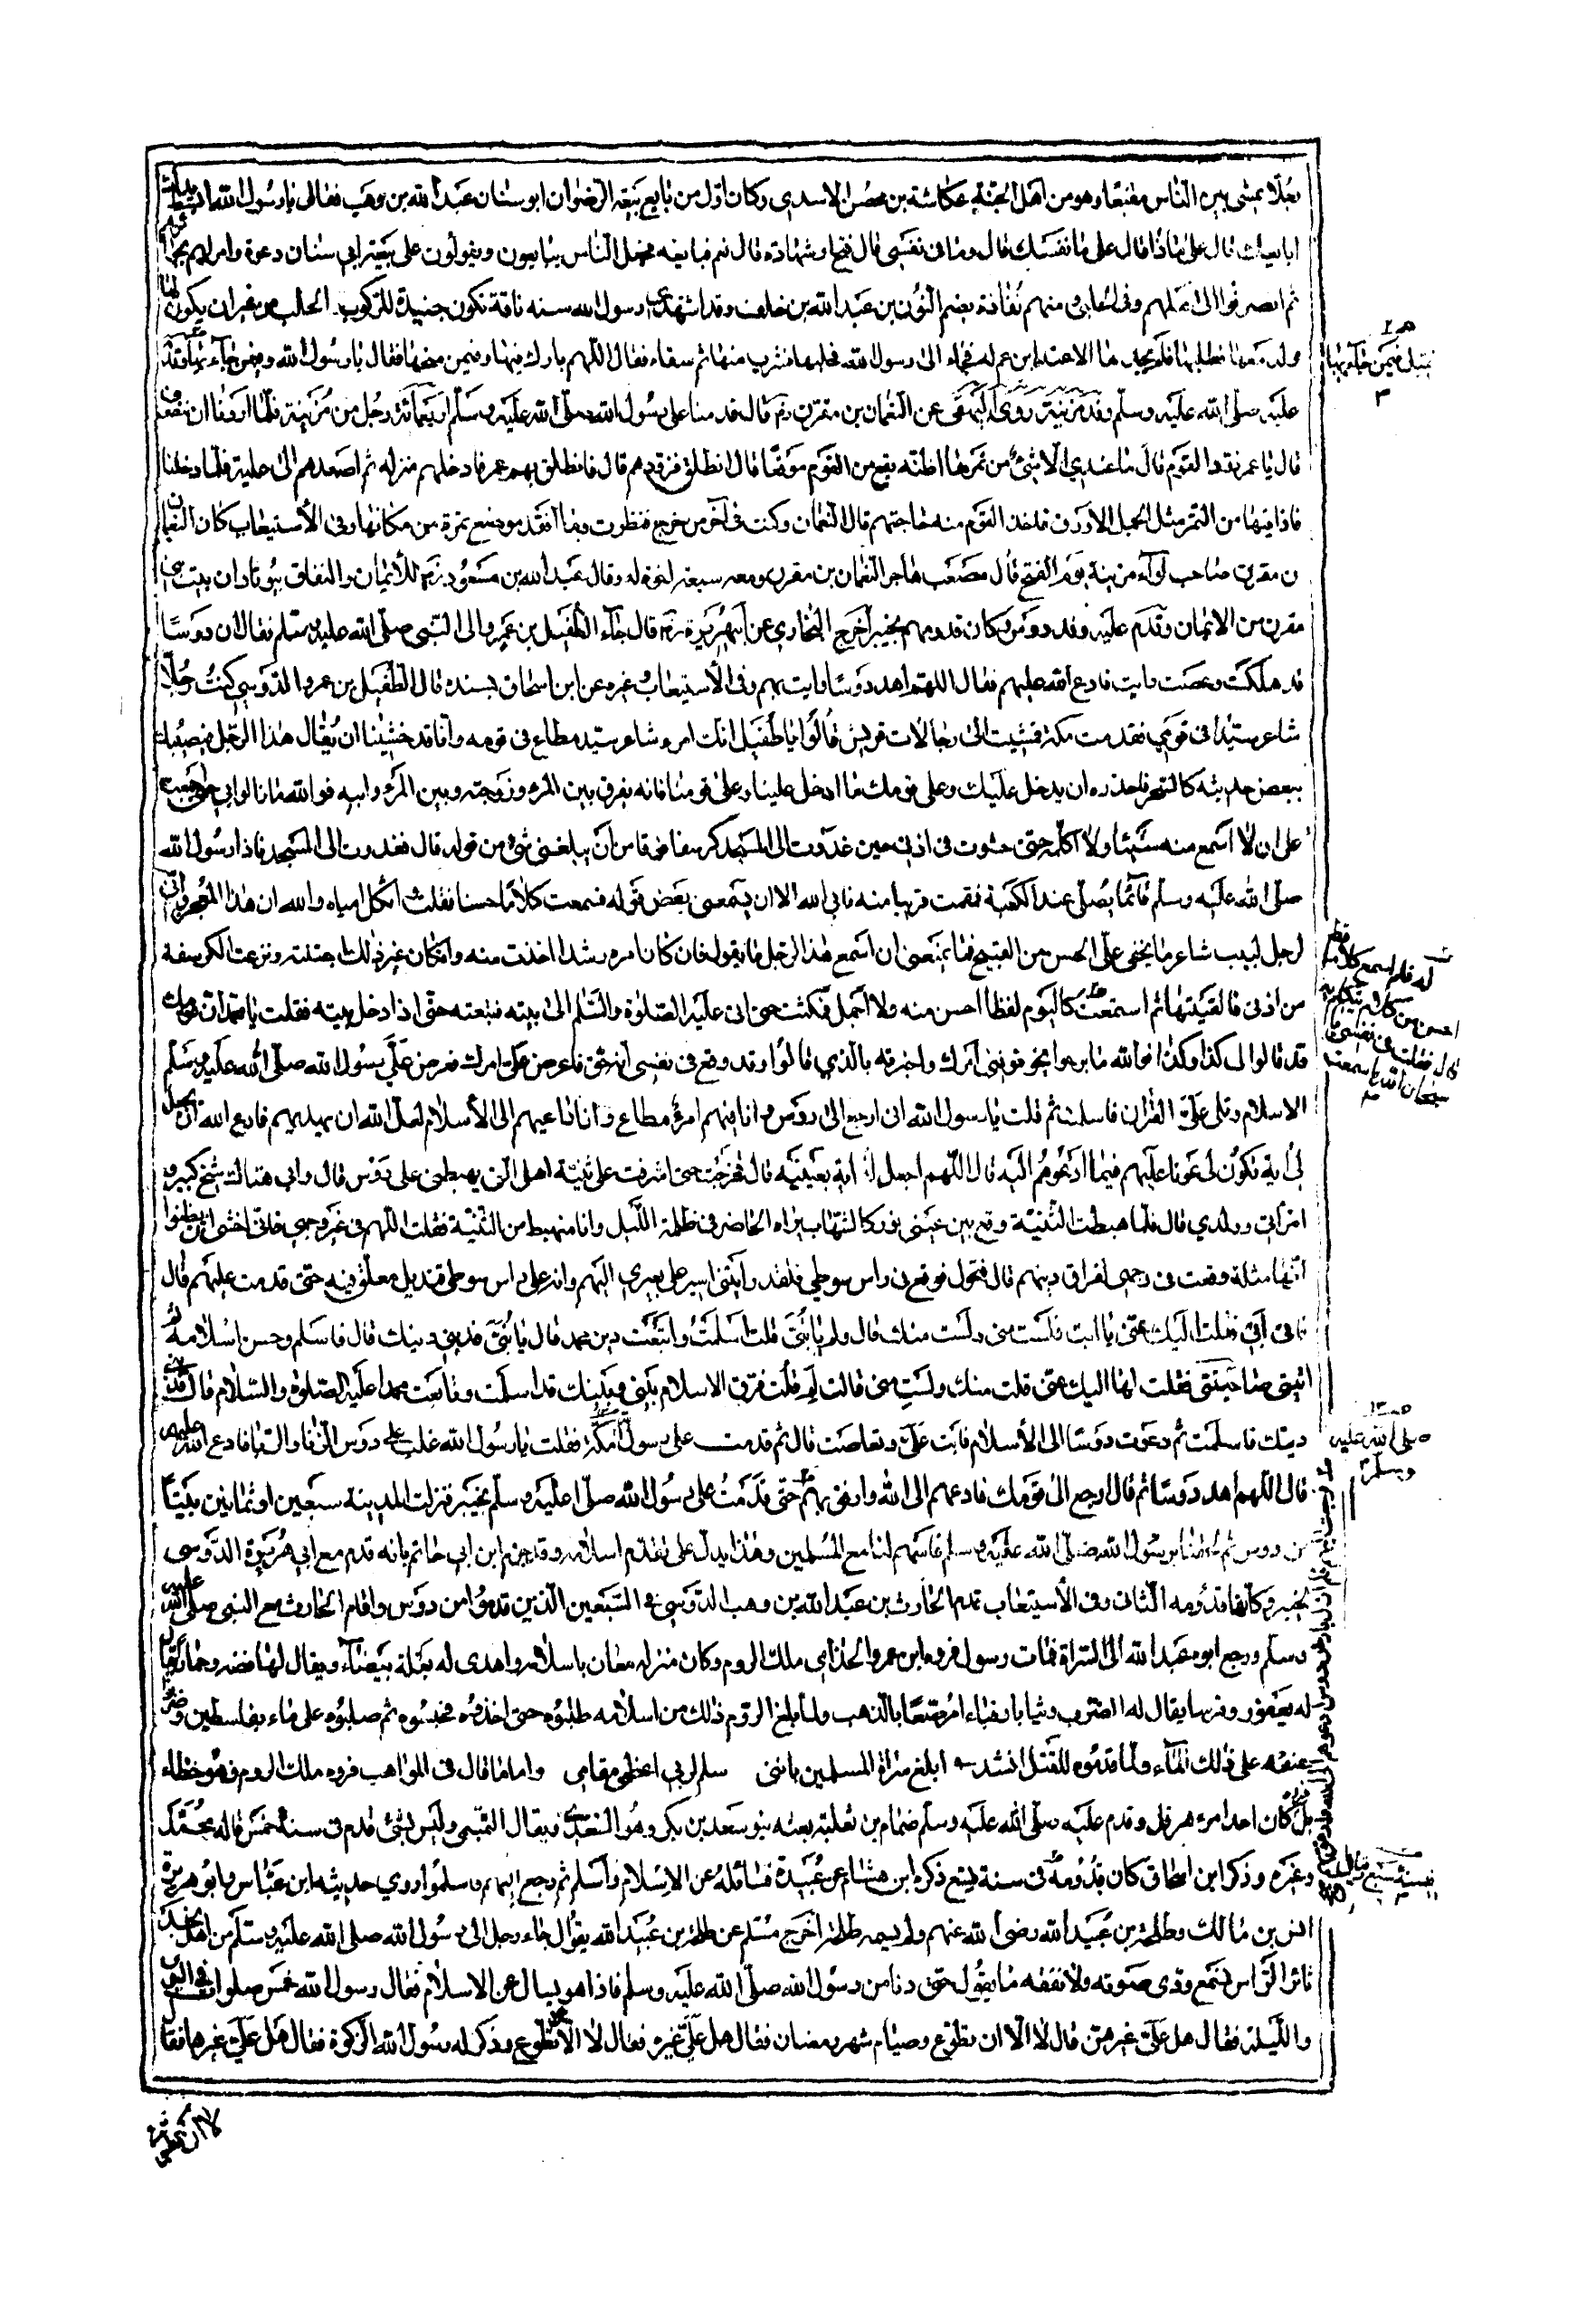 رجلا يمشي بين الناس مقنعا وهو من اهل الجنة عكاشة بن محصن الاسدي وكان اول من بايع بيعة الرضوان ابو سنان عبد الله بن وهب فقال يا رسول الله ابسط يدك
ابايعك قال على ماذا قال على ما نفسك قال وما في نفسي قال فتح وشهادة قال نعم فبايعه فجعل الناس يبايعون ويقولون على بيعة ابي سنان دعوة وامر لهم بجوائز
ثم انصرفوا الى اهلهم وفي اصحابي منهم نقادة بضم النون بن عبد الله بن خلف وقد استهدى رسول الله سنه ناقة تكون جنيدة للركوب الحلب من غير ان يكون لها
ولد معها فطلبها فلم يجدها الا عند ابن عم له فجاء الى رسول الله فحلبها فشرب منها ثم سقاه فقال اللهم بارك فيها وفيمن منحها فقال يا رسول الله وفيمن جاء بها وقدم
عليه صلى الله عليه وسلم وفد مزينة روى البيهقي عن النعمان بن مقرن رض قال قدمنا على رسول الله صلى الله عليه وسلم اربعمائة رجل من مزينة فلما اردنا ان ننصرف
قال يا عمر زود القوم قال ما عندي الا شئ من تمر ما اظنه يقع من القوم موقعا قال انطلق فزودهم قال فانطلق بهم عمر فادخلهم منزله ثم اصعدهم الى علية فلما دخلنا
فاذا فيها من التمر مثل الجمل الاورق فاخذ القوم منه حاجتهم قال النعمان وكنت في آخر من خرج فنظرت وما افقد موضع تمرة من مكانها وفي الاستيعاب كان النعمان
ن مقرن صاحب لواء مزينة يوم الفتح قال مصعب هاجر النعمان بن مقرن ومعه سبعة اخوة له وقال عبد الله بن مسعود رض للايمان والنفاق بيوتا وان بيت بني
مقرن من الايمان وقدم عليه وفد دوس وكان قدومهم بخيبر اخرج البخاري عن ابي هريرة رض قال جاء الطفيل بن عمرو الى النبي صلى الله عليه وسلم فقال ان دوسا
قد هلكت وعصت وابت فادع الله عليهم فقال اللهم اهد دوسا وايت بهم وفي الاستيعاب وغيره عن ابن اسحاق بسنده قال الطفيل بن عمرو الدوسي كنت رجلا
شاعرا سيدا في قومي فقدمت مكة فمشيت الى رجالات قريش قالوا يا طفيل انك امرء شاعر سيد مطاع في قومه وانا قد خشينا ان يقال هذا الرجل فيصيبك
ببعض حديثه كالسحر فاحذره ان يدخل عليك وعلى قومك ما ادخل علينا وعلى قومنا فانه يفرق بين المرء وزوجته وبين المرء وابيه فوالله ما زالوا بي حتى اجمعت
على ان لا اسمع منه شيئا ولا اكلمه حتى حشوت في اذني حين غدوت الى المسجد كرسفا فرقا من ان يبلغني شئ من قوله قال فغدوت الى المسجد فاذا رسول الله
صلى الله عليه وسلم قائما يصلي عند الكعبة فقمت قريبا منه فابى الله الا ان يسمعني بعض قوله فسمعت كلاما حسنا فقلت اثكل امياه والله ان هذا واني
لرجل لبيب شاعر ما يخفى علي الحسن من القبيح فما يمنعني ان اسمع هذا الرجل ما يقول فان كان امره رشدا اخذت منه وان كان غير ذلك اجتنبته ونزعت الكرسفة
من اذني فالقيتها ثم استمعت كاليوم لفظا احسن منه ولا اجمل فمكثت حتى اتى عليه الصلوة والسلام الى بيته فتبعته حتى اذا دخل بيته فقلت يا محمد ان قومك
قد قالوا لي كذا وكذا فوالله ما برحوا يخوفونني امرك واخبرته بالذي قالوا وقد وقع في نفسي انه حق فاعرض علي امرك فعرض علي رسول الله صلى الله عليه وسلم
الاسلام وتلى علي القرآن فاسلمت ثم قلت يا رسول الله اني ارجع الى دوس وانا فيهم امرؤ مطاع وانا داعيهم الى الاسلام لعل الله ان يهديهم فادع الله ان يجعل
لي آية تكون لي عونا عليهم فيما ادعوهم اليه قال اللهم اجعل له آية بعينيه قال فخرجت حتى اشرفت على ثنية اهلي التي يهبطني على دوس قال وابي هنالك شيخ كبير و
امراتي وولدي قال فلما هبطت الثنية وقع بين عيني نور كالشهاب يراه الحاضر في ظلمة الليل وانا منهبط من الثنية فقلت اللهم في غير وجهي فاني اخشى ان يظنوا
انها مثلة وقعت في وجهي لفراق دينهم قال فتحول فوقع في راس سوطي فلقد رايتني اسير على بعيري اليهم وانه على راس سوطي قنديل معلق فيه حتى قدمت عليهم قال
فاتى ابي فقلت اليك عني يا ابت فلست مني ولست منك قال ولم يا بني قلت اسلمت واتبعت دين محمد قال يا بني فديني دينك قال فاسلم وحسن اسلامه ثم
اتيتني صاحبتي فقلت لها اليك عني قلت منك ولست مني قالت لم قلت فرق الاسلام بيني وبينك قد اسلمت وتابعت محمدا عليه الصلوة والسلام قالت فديني
دينك فاسلمت ثم دعوت دوسا الى الاسلام فابت علي وتعاصت قال ثم قدمت على رسول الله مكة فقلت يا رسول الله غلب على دوس الزنا والربا فادع الله عليهم
قال اللهم اهد دوسا ثم قال ارجع الى قومك فادعهم الى الله وارفق بهم حتى قدمت على رسول الله صلى الله عليه وسلم بخيبر فنزلت المدينة سبعين او ثمانين بيتا
من دوس ثم لحقنا برسول الله صلى الله عليه وسلم فاسهم لنا مع المسلمين وهذا يدل على تقدم اسلامه وقد جزم ابن ابي حاتم بانه قدم مع ابي هريرة الدوسي
بخيبر وكانها قدومه الثاني وفي الاستيعاب قدم الحارث بن عبد الله بن وهب الدوسي في السبعين الذين قدموا من دوس واقام الحارث مع النبي صلى الله عليه
وسلم ورجع ابوه عبد الله الى السراة فمات رسول فروة ابن عمرو الجذامي ملك الروم وكان منزله معان باسلامه واهدى له بغلة بيضاء ويقال لها فضة وحمارا يقال
له يعفور وفرسا يقال له الضرب وثيابا وقباء مرصعا بالذهب ولما بلغ الروم ذلك من اسلامه طلبوه حتى اخذوه فحبسوه ثم صلبوه على ماء بفلسطين وضربوا
عنقه على ذلك الماء ولما قدموه للقتل انشد ابلغ سراة المسلمين بانني سلم لربي اعظمي ومقامي واما ما قال في المواهب فروة ملك الروم فهو خطاء
بل كان احد امراء هرقل وقدم عليه صلى الله عليه وسلم ضمام بن ثعلبة بعثه بنو سعد بن بكر وهو السعدي فيقال التميمي وليس بشئ قدم في سنة خمس قاله محمد
وغيره وذكر ابن اسحاق كان قدومه في سنة تسع ذكره ابن هشام عن عبيدة فسائله عن الاسلام واسلم ثم رجع اليهم فاسلموا روي حديثه ابن عباس وابو هريرة
انس بن مالك وطلحة بن عبيد الله رضي الله عنهم ولم يسمه طلحة اخرج مسلم عن طلحة بن عبيد الله يقول جاء رجل الى رسول الله صلى الله عليه وسلم من اهل نجد
ثائر الراس نسمع دوى صوته ولا نفقه ما يقول حتى دنا من رسول الله صلى الله عليه وسلم فاذا هو يسال عن الاسلام فقال رسول الله خمس صلوات في اليوم
والليلة فقال هل علي غيرهن قال لا الا ان تطوع وصيام شهر رمضان فقال هل علي غيره فقال لا الا ان تطوع وذكر له رسول الله الزكوة فقال هل علي غيرها فقال
صلى الله عليه
وسلم